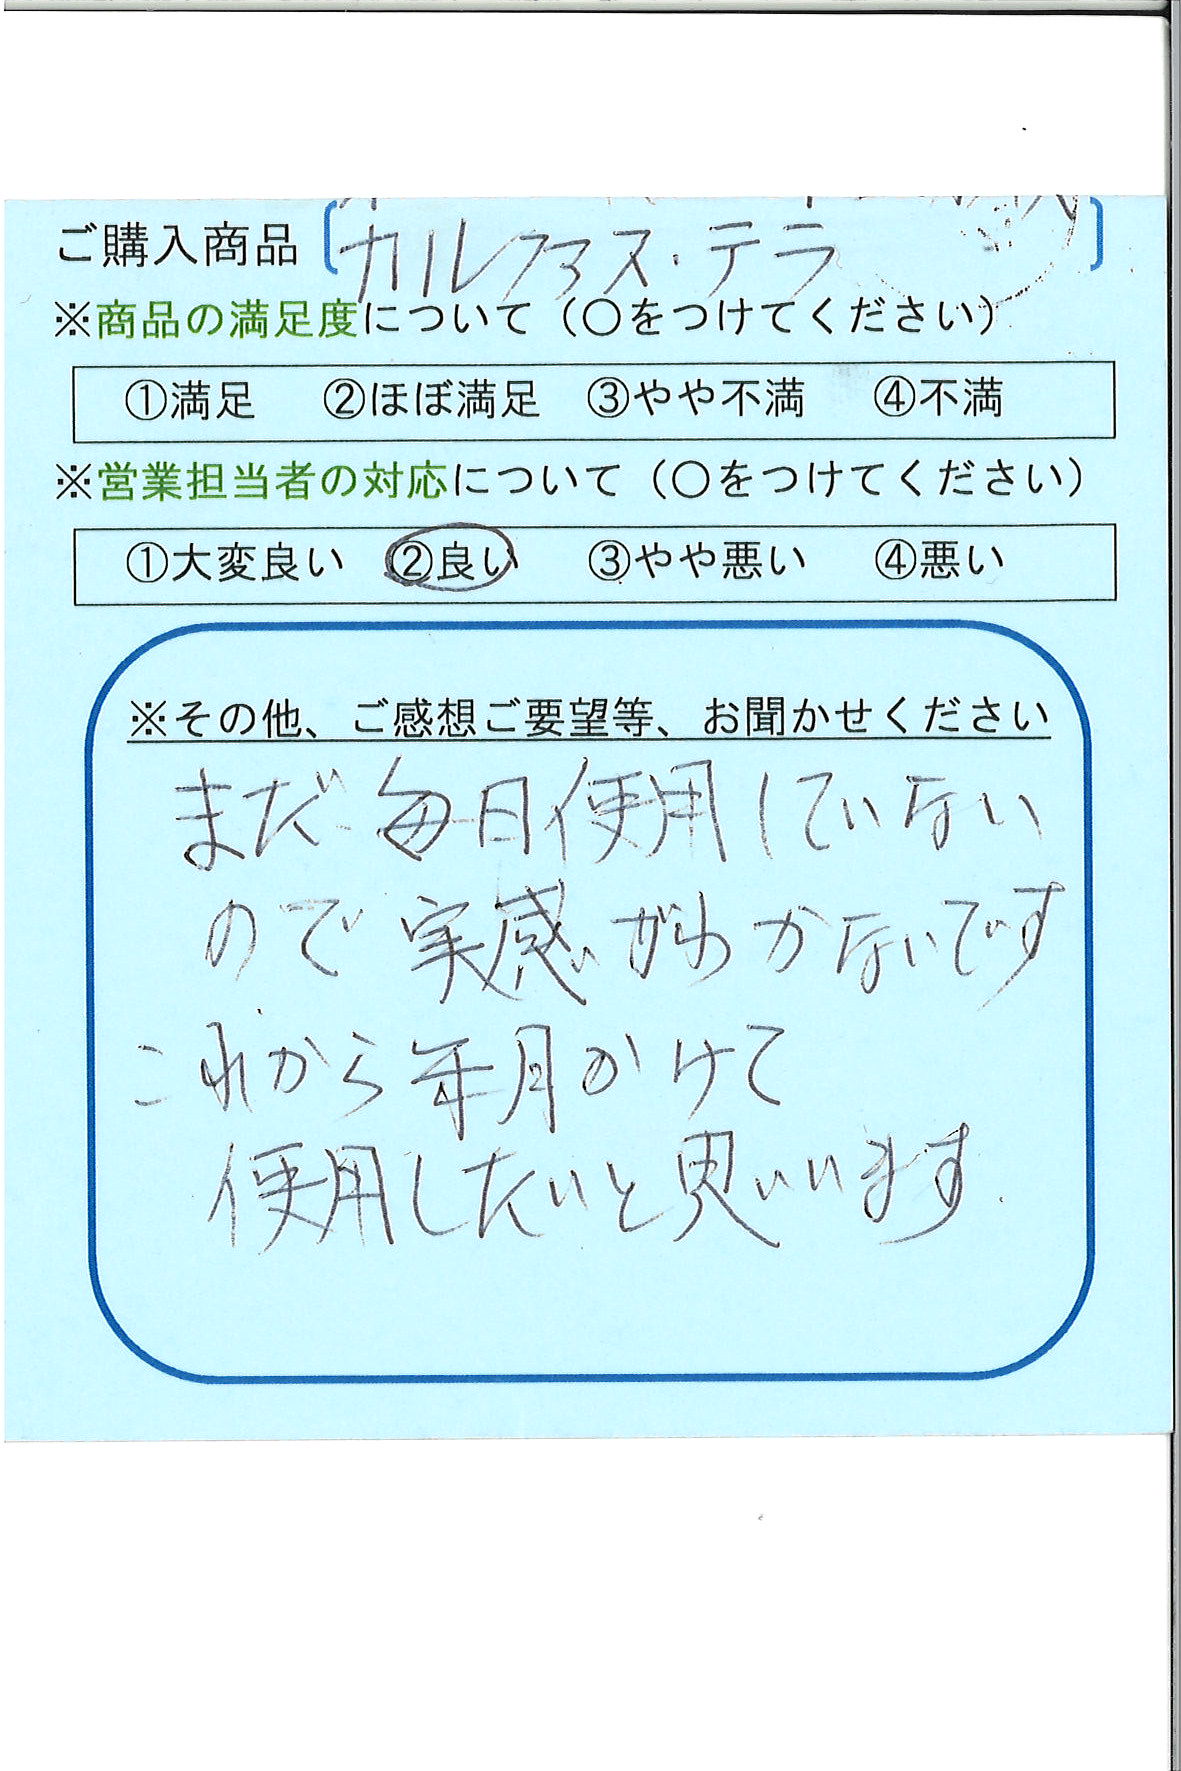 ご購入商品
カルファス・テラ
※商品の満足度について（〇をつけてください）
①満足 ②ほぼ満足 ③やや不満 ④不満
※営業担当者の対応について（〇をつけてください）
①大変良い ②良い ③やや悪い ④悪い
※その他、ご感想ご要望等、お聞かせください
まだ毎日使用していない
ので実感がわかないです
これから年月かけて
使用したいと思いいます